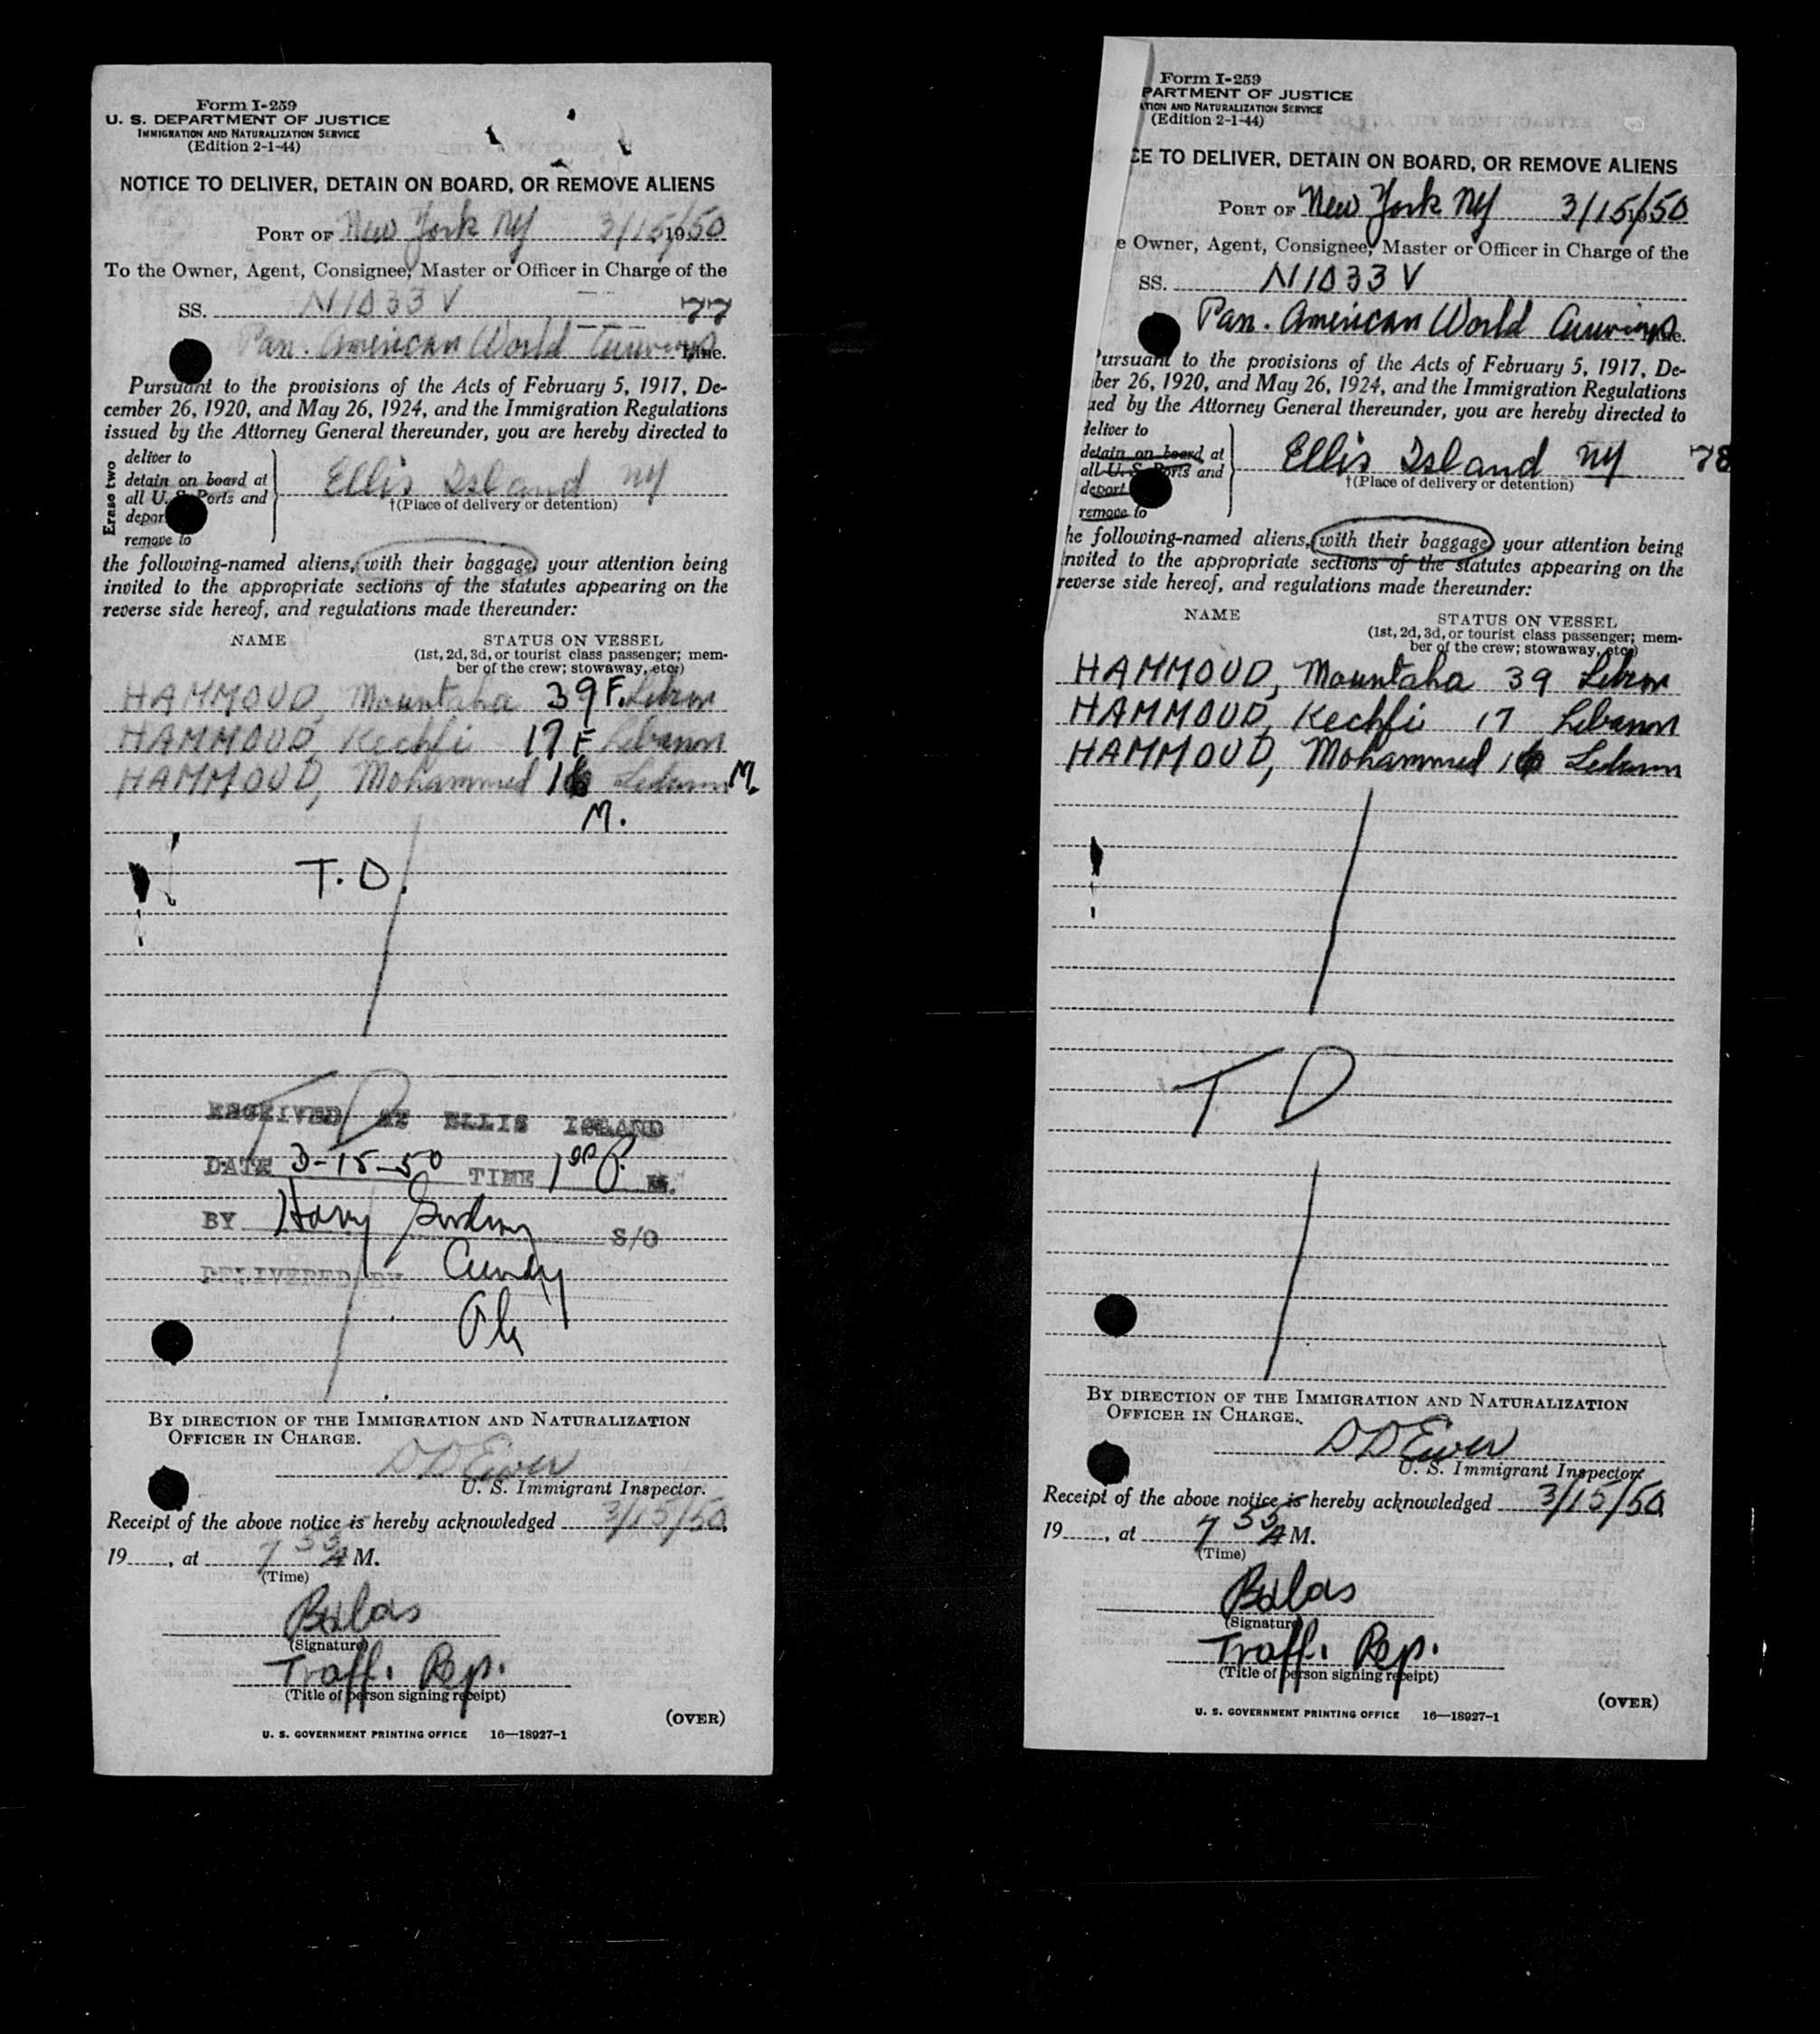 Form I-259
U. S. DEPARTMENT OF JUSTICE
IMMIGRATION AND NATURALIZATION SERVICE
(Edition 2-1-44)
NOTICE TO DELIVER, DETAIN ON BOARD, OR REMOVE ALIENS
PORT OF New York NY 3/15, 1950
To the Owner, Agent, Consignee, Master or Officer in Charge of the
SS. N1033V 77
Pan. American World Airways Line.
Pursuant to the provisions of the Acts of February 5, 1917, De-
cember 26, 1920, and May 26, 1924, and the Immigration Regulations
issued by the Attorney General thereunder, you are hereby directed to
Erase two
deliver to
detain on board at
all U. S. Ports and
depor
remove to
Ellis Island NY
†(Place of delivery or detention)
the following-named aliens, with their baggage, your attention being
invited to the appropriate sections of the statutes appearing on the
reverse side hereof, and regulations made thereunder:
NAME STATUS ON VESSEL
(1st, 2d, 3d, or tourist class passenger; mem-
ber of the crew; stowaway, etc.)
HAMMOUD, Mountaha 39 F.
HAMMOUD, Kechfi 17 F Lebanon
HAMMOUD, Mohammed 16 M.
M.
T.D.
T D
RECEIVED AT ELLIS ISLAND
DATE 3-15-50 TIME 1 00 P. M.
BY Harry S/O
DELIVERED BY
BY DIRECTION OF THE IMMIGRATION AND NATURALIZATION
OFFICER IN CHARGE.
D D Ewer
U. S. Immigrant Inspector.
Receipt of the above notice is hereby acknowledged 3/15/50,
19____, at 7 55 A M.
(Time)
Balas
(Signature)
Traff. Rep.
(Title of person signing receipt)
(OVER)
U. S. GOVERNMENT PRINTING OFFICE 16—18927-1
Form I-259
PARTMENT OF JUSTICE
ATION AND NATURALIZATION SERVICE
(Edition 2-1-44)
CE TO DELIVER, DETAIN ON BOARD, OR REMOVE ALIENS
PORT OF New York NY 3/15/50
e Owner, Agent, Consignee, Master or Officer in Charge of the
SS. N1033V
Pan. American World Airways Line.
Pursuant to the provisions of the Acts of February 5, 1917, De-
ber 26, 1920, and May 26, 1924, and the Immigration Regulations
ued by the Attorney General thereunder, you are hereby directed to
deliver to
detain on board at
all U. S. Ports and
deport
remove to
Ellis Island NY 78
†(Place of delivery or detention)
he following-named aliens, with their baggage, your attention being
invited to the appropriate sections of the statutes appearing on the
reverse side hereof, and regulations made thereunder:
NAME STATUS ON VESSEL
(1st, 2d, 3d, or tourist class passenger; mem-
ber of the crew; stowaway, etc.)
HAMMOUD, Mountaha 39
HAMMOUD, Kechfi 17 Lebanon
HAMMOUD, Mohammed 16
T D
BY DIRECTION OF THE IMMIGRATION AND NATURALIZATION
OFFICER IN CHARGE.
D D Ewer
U. S. Immigrant Inspector.
Receipt of the above notice is hereby acknowledged 3/15/50
19____, at 7 55 A M.
(Time)
Balas
(Signature)
Traff. Rep.
(Title of person signing receipt)
(OVER)
U. S. GOVERNMENT PRINTING OFFICE 16—18927-1